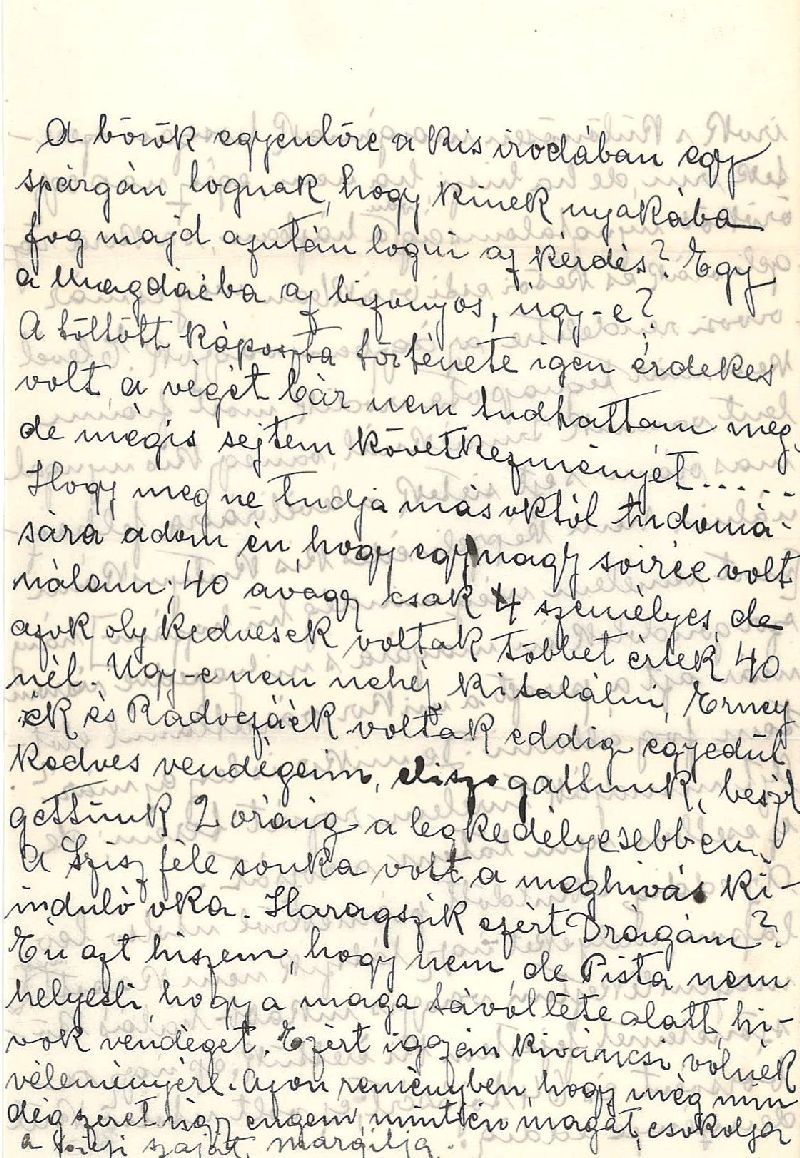 A bőrök egyenlőre a kis irodában egy
spárgán lognak, hogy kinek nyakába
fog majd azután logni az kérdés? Egy
a Magdáéba az bizonyos, úgy-e?
A töltött káposzta története igen érdekes
volt, a végét bár nem tudhattam meg,
de mégis sejtem következményét.....
Hogy meg ne tudja másoktól tudomá-
sára adom én, hogy egy nagy soirée volt
nálam; 40 avagy csak 4 személyes, de
azok oly kedvesek voltak többet értek 40
nél. Úgy-e nem nehéz kitalálni, Erney
ék és Radveják voltak eddig egyedül
kedves vendégeim, gattunk, beszél
gettünk 2 óráig a legkedélyesebben.
A Szisz féle sonka volt a meghívás ki-
induló oka. Haragszik ezért Drágám?
Én azt hiszem, hogy nem, de Pista nem
helyesli, hogy a maga távolléte alatt hi-
vok vendéget. Ezért igazán kiváncsi volnék
véleményérl. Azon reményben, hogy még min
dég szeret úgy engem, mint én magát, csokolja
a száját, margitja.